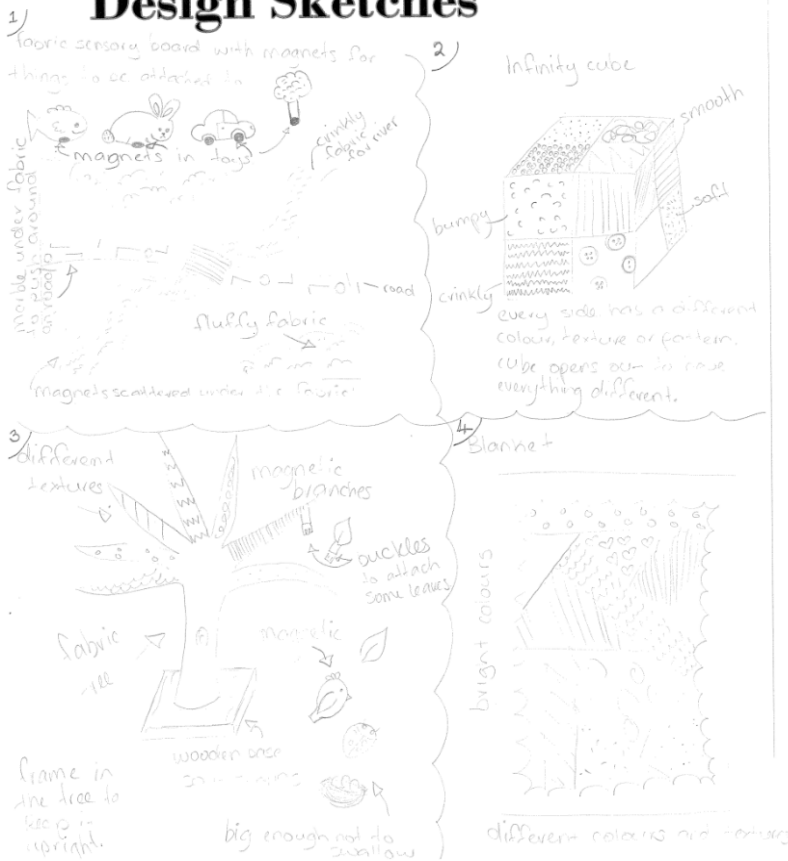 Design Sketches
1)
fabric sensory board with magnets for
things to be attached to
magnets in toys
crinkly
fabric
for river
marble under fabric
to push around
on road
road
fluffy fabric
magnets scattered under the fabric
2)
Infinity cube
smooth
soft
bumpy
crinkly
every side has a different
colour, texture or pattern.
cube opens out to have
everything different.
3)
different
textures
magnetic
branches
buckles
to attach
some leaves
fabric
tree
magnetic
wooden base
frame in
the tree to
keep it
upright.
big enough not to
swallow
4)
Blanket
bright colours
different colours and textures